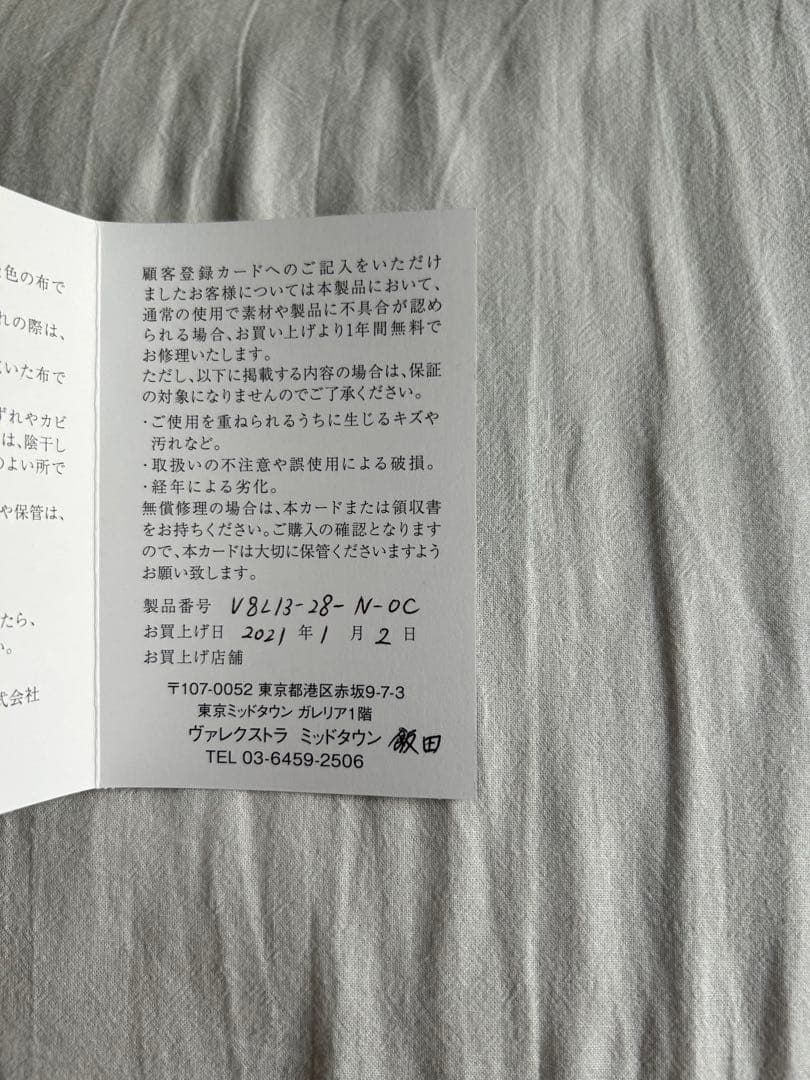 色の布で
れの際は、
いた布で
ずれやカビ
は、陰干し
のよい所で
や保管は、
たら、
い。
式会社
顧客登録カードへのご記入をいただけ
ましたお客様については本製品において、
通常の使用で素材や製品に不具合が認め
られる場合、お買い上げより1年間無料で
お修理いたします。
ただし、以下に掲載する内容の場合は、保証
の対象になりませんのでご了承ください。
・ご使用を重ねられるうちに生じるキズや
汚れなど。
・取扱いの不注意や誤使用による破損。
・経年による劣化。
無償修理の場合は、本カードまたは領収書
をお持ちください。ご購入の確認となります
ので、本カードは大切に保管くださいますよう
お願い致します。
製品番号 V8L13-28-N-OC
お買上げ日 2021 年 1 月 2 日
お買上げ店舗
〒107-0052 東京都港区赤坂9-7-3
東京ミッドタウン ガレリア1階
ヴァレクストラ ミッドタウン 飯田
TEL 03-6459-2506